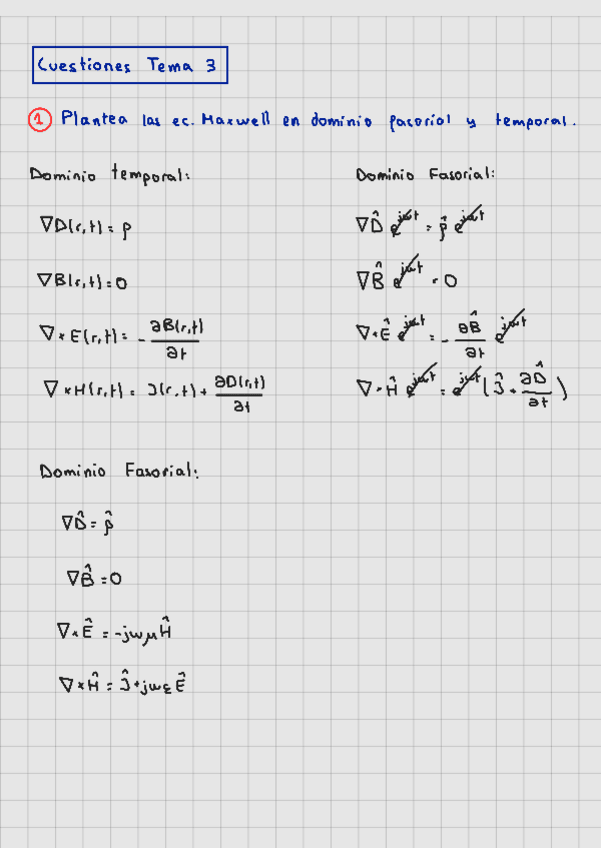 Cuestiones Tema 3
1 Plantea las ec. Maxwell en dominio fasorial y temporal.
Dominio temporal:
∇D(r,t) = ρ
∇B(r,t) = 0
∇×E(r,t) = - ∂B(r,t)/∂t
∇×H(r,t) = J(r,t) + ∂D(r,t)/∂t
Dominio Fasorial:
∇D̂ e^jωt = ρ̂ e^jωt
∇B̂ e^jωt = 0
∇×Ê e^jωt = - ∂B̂/∂t e^jωt
∇×Ĥ e^jωt = e^jωt (Ĵ + ∂D̂/∂t)
Dominio Fasorial:
∇D̂ = ρ̂
∇B̂ = 0
∇×Ê = -jωμĤ
∇×Ĥ = Ĵ+jωεÊ